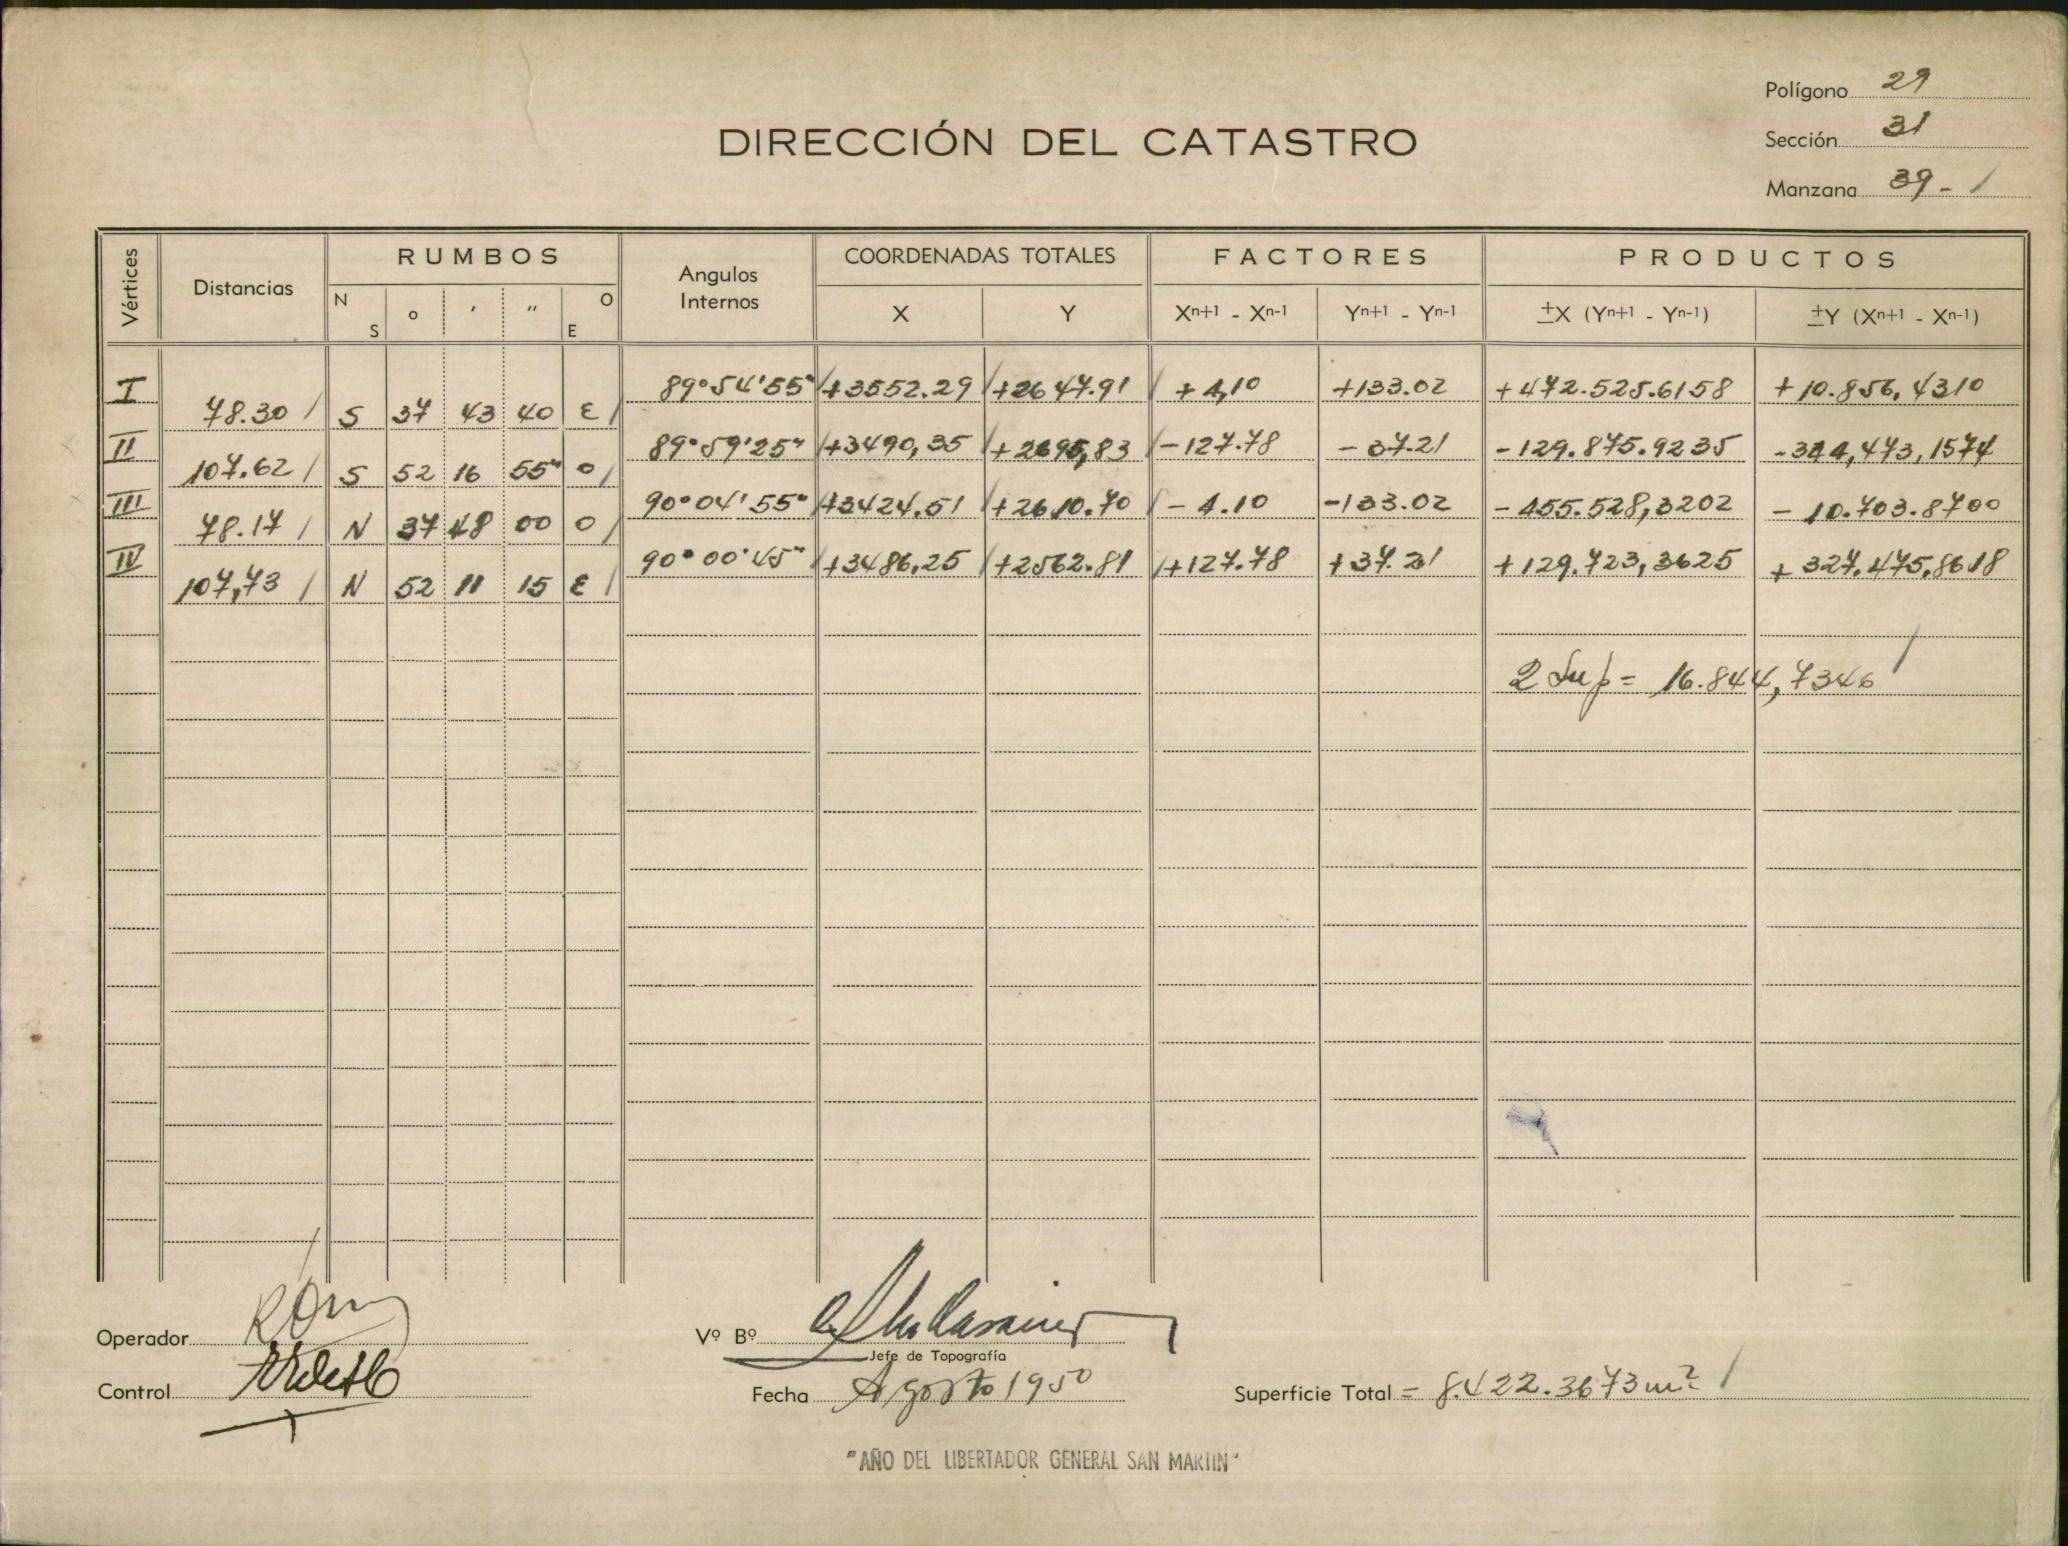 Polígono 29
DIRECCIÓN DEL CATASTRO
Sección 31
Manzana 39 - /
Vértices Distancias RUMBOS Angulos Internos COORDENADAS TOTALES FACTORES PRODUCTOS
N S o ′ ″ O E X Y Xn+1 - Xn-1 Yn+1 - Yn-1 ±X (Yn+1 - Yn-1) ±Y (Xn+1 - Xn-1)
I 89°54'55" +3552.29 +2647.91 +4,10 +133.02 +472.525.6158 +10.856,4310
78.30 S 37 43 40 E
II 89°59'25" +3490,35 +2695,83 -127.78 -37.21 -129.875.9235 -344,473,1574
107.62 S 52 16 55" O
III 90°04'55" +3424.51 +2610.70 -4.10 -133.02 -455.528,3202 -10.703.8700
78.17 N 37 48 00 O
IV 90°00'45" +3486,25 +2562.81 +127.78 +37.21 +129.723,3625 +327.475,8618
107,73 N 52 11 15 E
2 Sup = 16.844,7346
Operador
Vº Bº
Jefe de Topografía
Control
Fecha Agosto 1950
Superficie Total = 8.422.3673 m²
"AÑO DEL LIBERTADOR GENERAL SAN MARTIN"